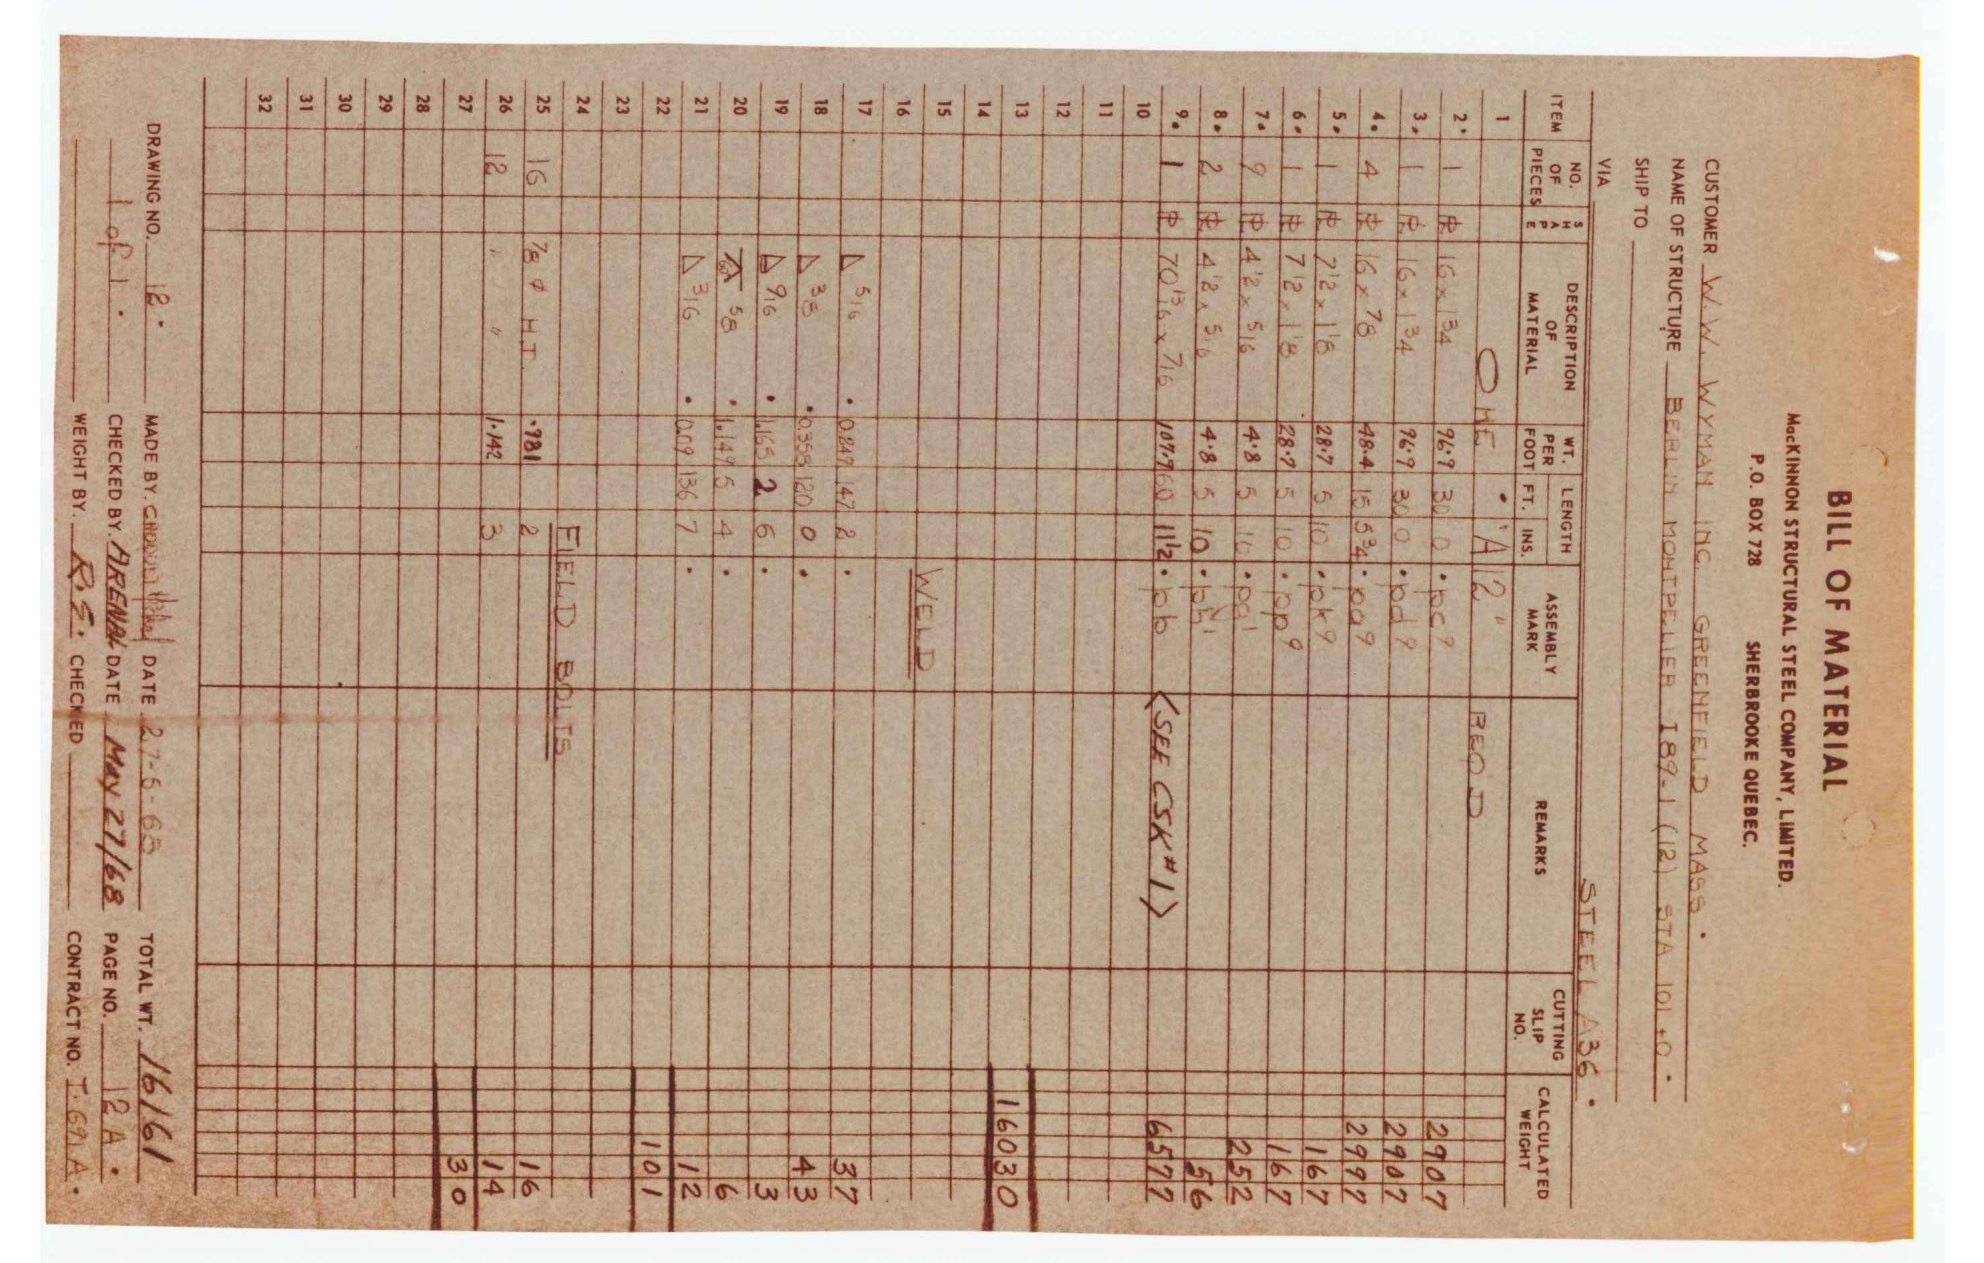 BILL OF MATERIAL
MacKINNON STRUCTURAL STEEL COMPANY, LIMITED.
P.O. BOX 728 SHERBROOKE QUEBEC.
CUSTOMER W.W. WYMAN INC. GREENFIELD MASS.
NAME OF STRUCTURE BERLIN MONTPELIER I 89-1 (12) STA 101+0.
SHIP TO
VIA STEEL A36.
ITEM NO. OF PIECES SHAPE DESCRIPTION OF MATERIAL WT. PER FOOT LENGTH FT. INS. ASSEMBLY MARK REMARKS CUTTING SLIP NO. CALCULATED WEIGHT
1 ONE "A12" REQ'D
2. 1 PL 16 x 1 3/4 96.9 30 0 pc9 2907
3. 1 PL 16 x 1 3/4 96.9 30 0 pd9 2907
4. 4 PL 16 x 7/8 48.4 15 5 3/4 pa9 2997
5. 1 PL 7 1/2 x 1 1/8 28.7 5 10 pk9 167
6. 1 PL 7 1/2 x 1 1/8 28.7 5 10 pp9 167
7. 9 PL 4 1/2 x 5/16 4.8 5 10 pg1 252
8. 2 PL 4 1/2 x 5/16 4.8 5 10 ph1 56
9. 1 PL 70 13/16 x 7/16 107.9 60 11 1/2 pb (SEE CSK #1) 6577
10
11
12
13 16030
14
15
16 WELD
17 5/16 0.247 147 2 37
18 3/8 0.355 120 0 43
19 9/16 1.165 2 6 3
20 5/8 1.149 5 4 6
21 3/16 0.09 136 7 12
22 101
23
24 FIELD BOLTS
25 16 7/8 ø H.T. .981 2 16
26 12 " " " 1.142 3 14
27 30
28
29
30
31
32
DRAWING NO. 12. MADE BY. DATE 27-5-68 TOTAL WT. 16161
1 of 1. CHECKED BY. ARENAL DATE May 27/68 PAGE NO. 12A.
WEIGHT BY. R.S. CHECKED CONTRACT NO. T-691A.